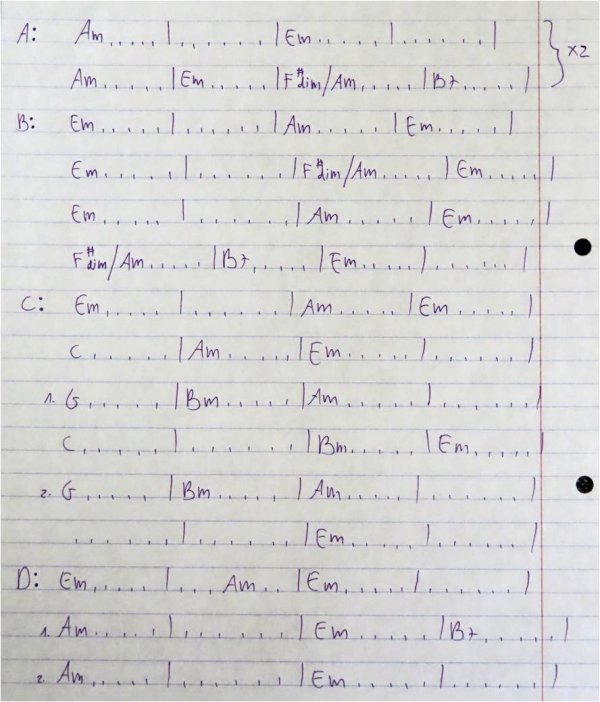 A: Am..... | ...... | Em..... | ...... |
Am..... | Em..... | F#dim/Am..... | B7..... | } x2
B: Em..... | ...... | Am..... | Em..... |
Em..... | ...... | F#dim/Am..... | Em..... |
Em..... | ...... | Am..... | Em..... |
F#dim/Am..... | B7..... | Em..... | ...... |
C: Em..... | ...... | Am..... | Em..... |
C...... | Am..... | Em..... | ...... |
1. G..... | Bm..... | Am..... | ...... |
C..... | ...... | Bm..... | Em..... |
2. G..... | Bm..... | Am..... | ...... |
...... | ...... | Em..... | ...... |
D: Em..... | ... Am.. | Em..... | ...... |
1. Am..... | ...... | Em..... | B7..... |
2. Am..... | ...... | Em..... | ...... |